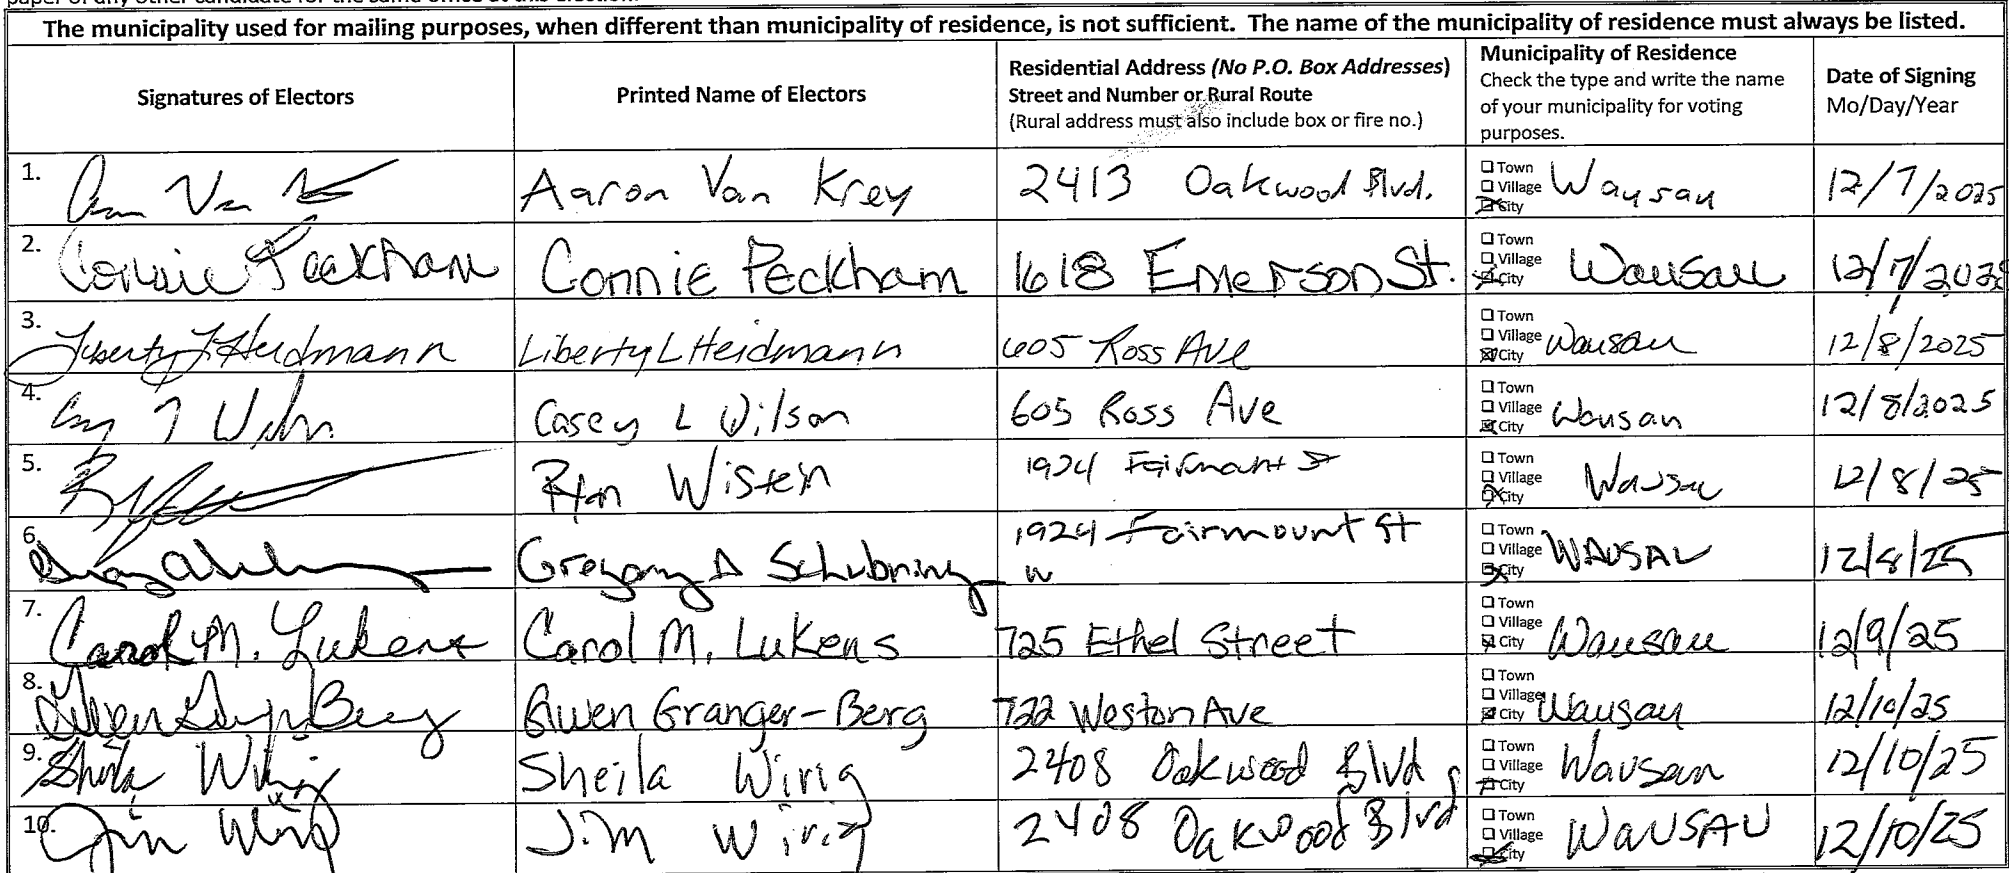 The municipality used for mailing purposes, when different than municipality of residence, is not sufficient. The name of the municipality of residence must always be listed.
Signatures of Electors
Printed Name of Electors
Residential Address (No P.O. Box Addresses)
Street and Number or Rural Route
(Rural address must also include box or fire no.)
Municipality of Residence
Check the type and write the name
of your municipality for voting
purposes.
Date of Signing
Mo/Day/Year
1. Aaron Van Krey 2413 Oakwood Blvd. Town Village City Wausau 12/7/2025
2. Connie Peckham Connie Peckham 1618 Emerson St. Town Village City Wausau 12/7/2025
3. Liberty L Heidmann Liberty L Heidmann 605 Ross Ave Town Village City Wausau 12/8/2025
4. Casey L Wilson 605 Ross Ave Town Village City Wausau 12/8/2025
5. Wistein 1924 Fairmount St Town Village City Wausau 12/8/25
6. Gregory A Schubring 1924 Fairmount St Town Village City WAUSAU 12/8/25
W
7. Carol M. Lukens Carol M. Lukens 725 Ethel Street Town Village City Wausau 12/9/25
8. Gwen Granger-Berg 722 Weston Ave Town Village City Wausau 12/10/25
9. Sheila Wirig Sheila Wirig 2408 Oakwood Blvd Town Village City Wausau 12/10/25
10. Jim Wirig Jim Wirig 2408 Oakwood Blvd Town Village City WAUSAU 12/10/25